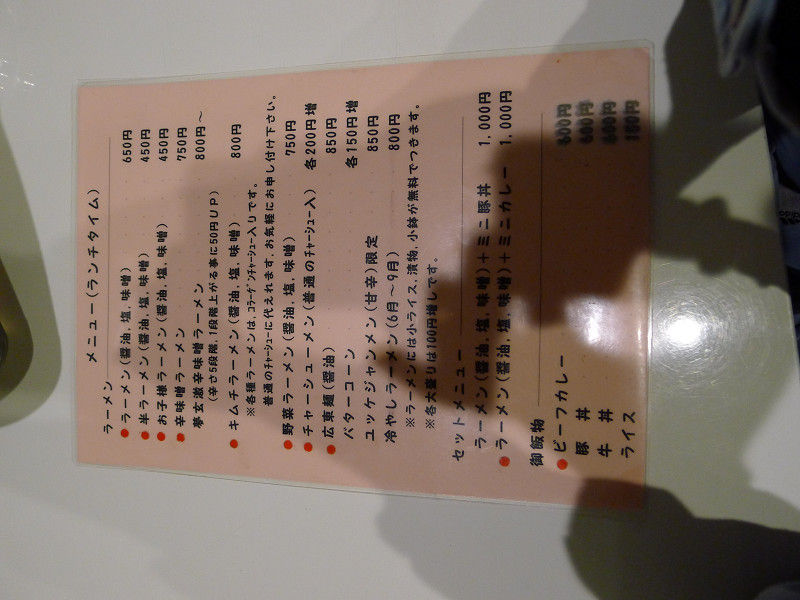 メニュー(ランチタイム)
ラーメン
ラーメン(醤油,塩,味噌) 650円
半ラーメン(醤油,塩,味噌) 450円
お子様ラーメン(醤油,塩,味噌) 450円
辛味噌ラーメン 750円
夢玄激辛味噌ラーメン 800円～
(辛さ5段階,1段階上がる事に50円UP)
キムチラーメン(醤油,塩,味噌) 800円
※各種ラーメンは,コラーゲンチャーシュー入りです。
普通のチャーシューに代えれます,お気軽にお申し付け下さい。
野菜ラーメン(醤油,塩,味噌) 750円
チャーシューメン(普通のチャーシュー入) 各200円増
広東麺(醤油) 850円
バターコーン 各150円増
ユッケジャンメン(甘辛)限定 850円
冷やしラーメン(6月～9月) 800円
※ラーメンには小ライス,漬物,小鉢が無料でつきます。
※各大盛りは100円増しです。
セットメニュー
ラーメン(醤油,塩,味噌)＋ミニ豚丼 1,000円
ラーメン(醤油,塩,味噌)＋ミニカレー 1,000円
御飯物
ビーフカレー 600円
豚丼 600円
牛丼 600円
ライス 150円